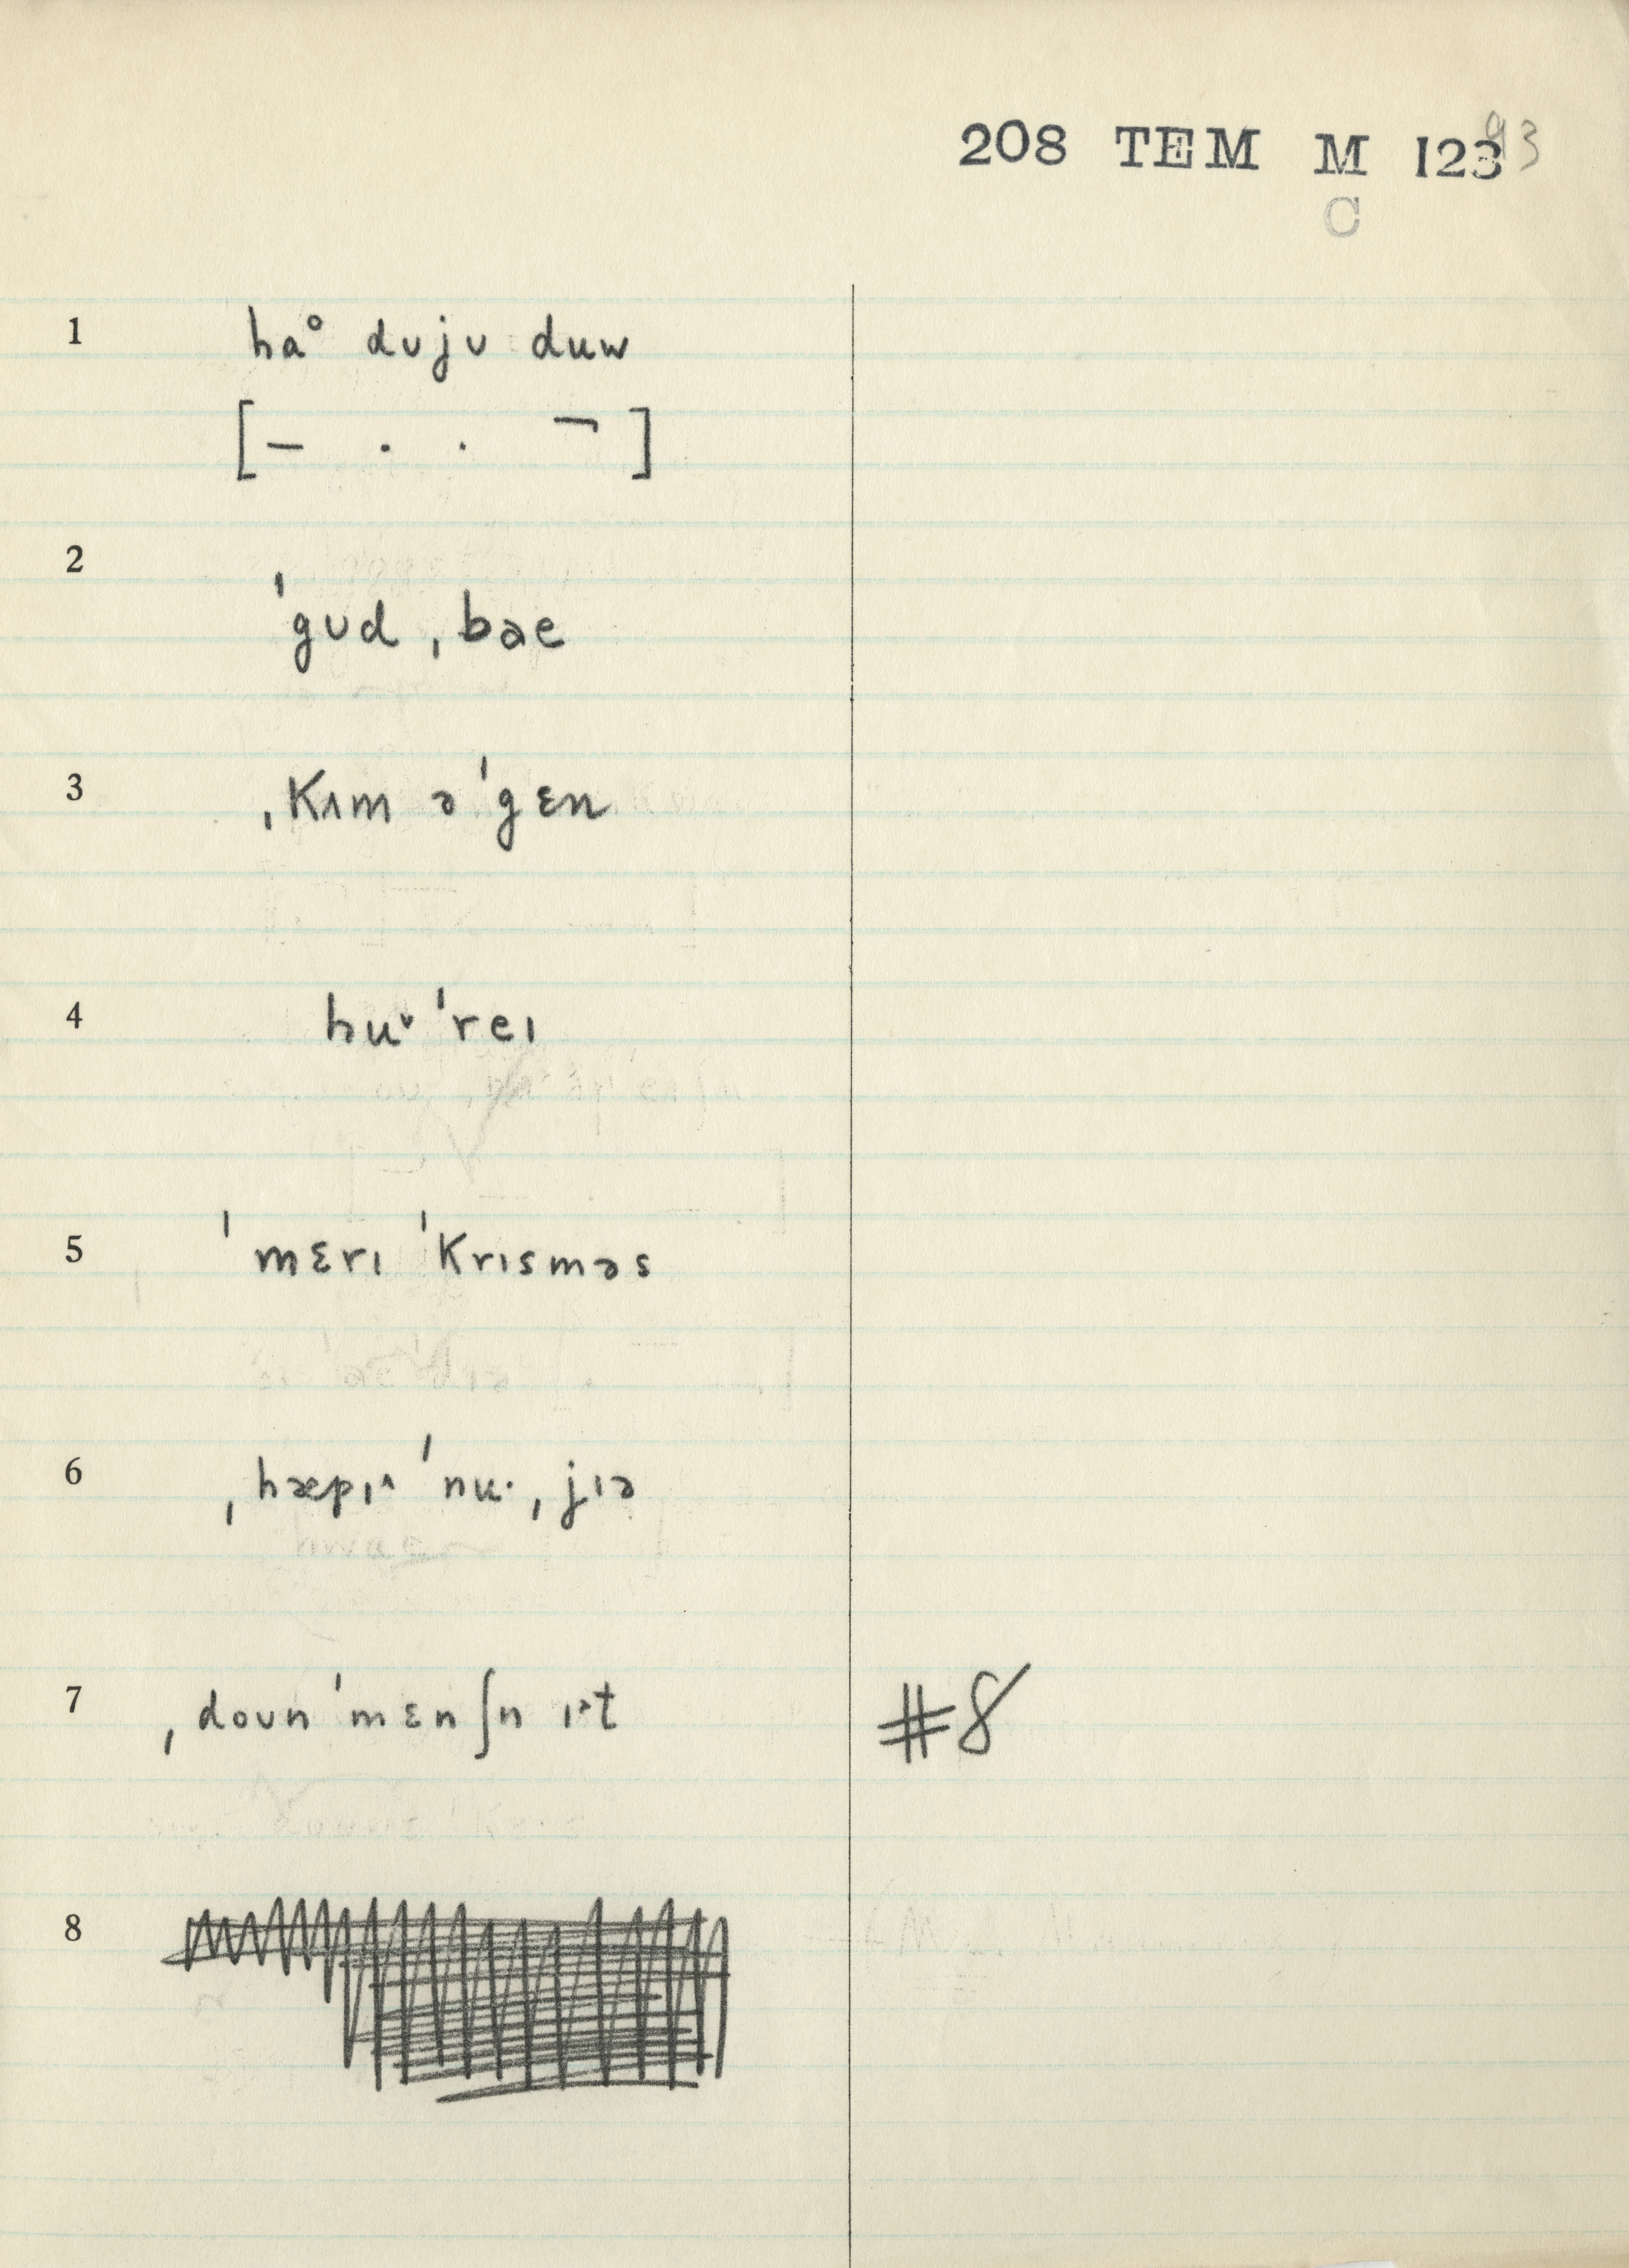 208 TEM M 123 93
C
1 haᵒ dʊjʊ duw
[– . . ¬]
2 ˈgʊd ˌbae
3 ˌkʌm əˈgɛn
4 huᵛ ˈreɪ
5 ˈmɛrɪ ˈkrɪsməs
6 ˌhæpɪ˄ ˈnʉ· ˌjɪə
7 ˌdoʊn ˈmɛnʃn ɪ˃t #8
8